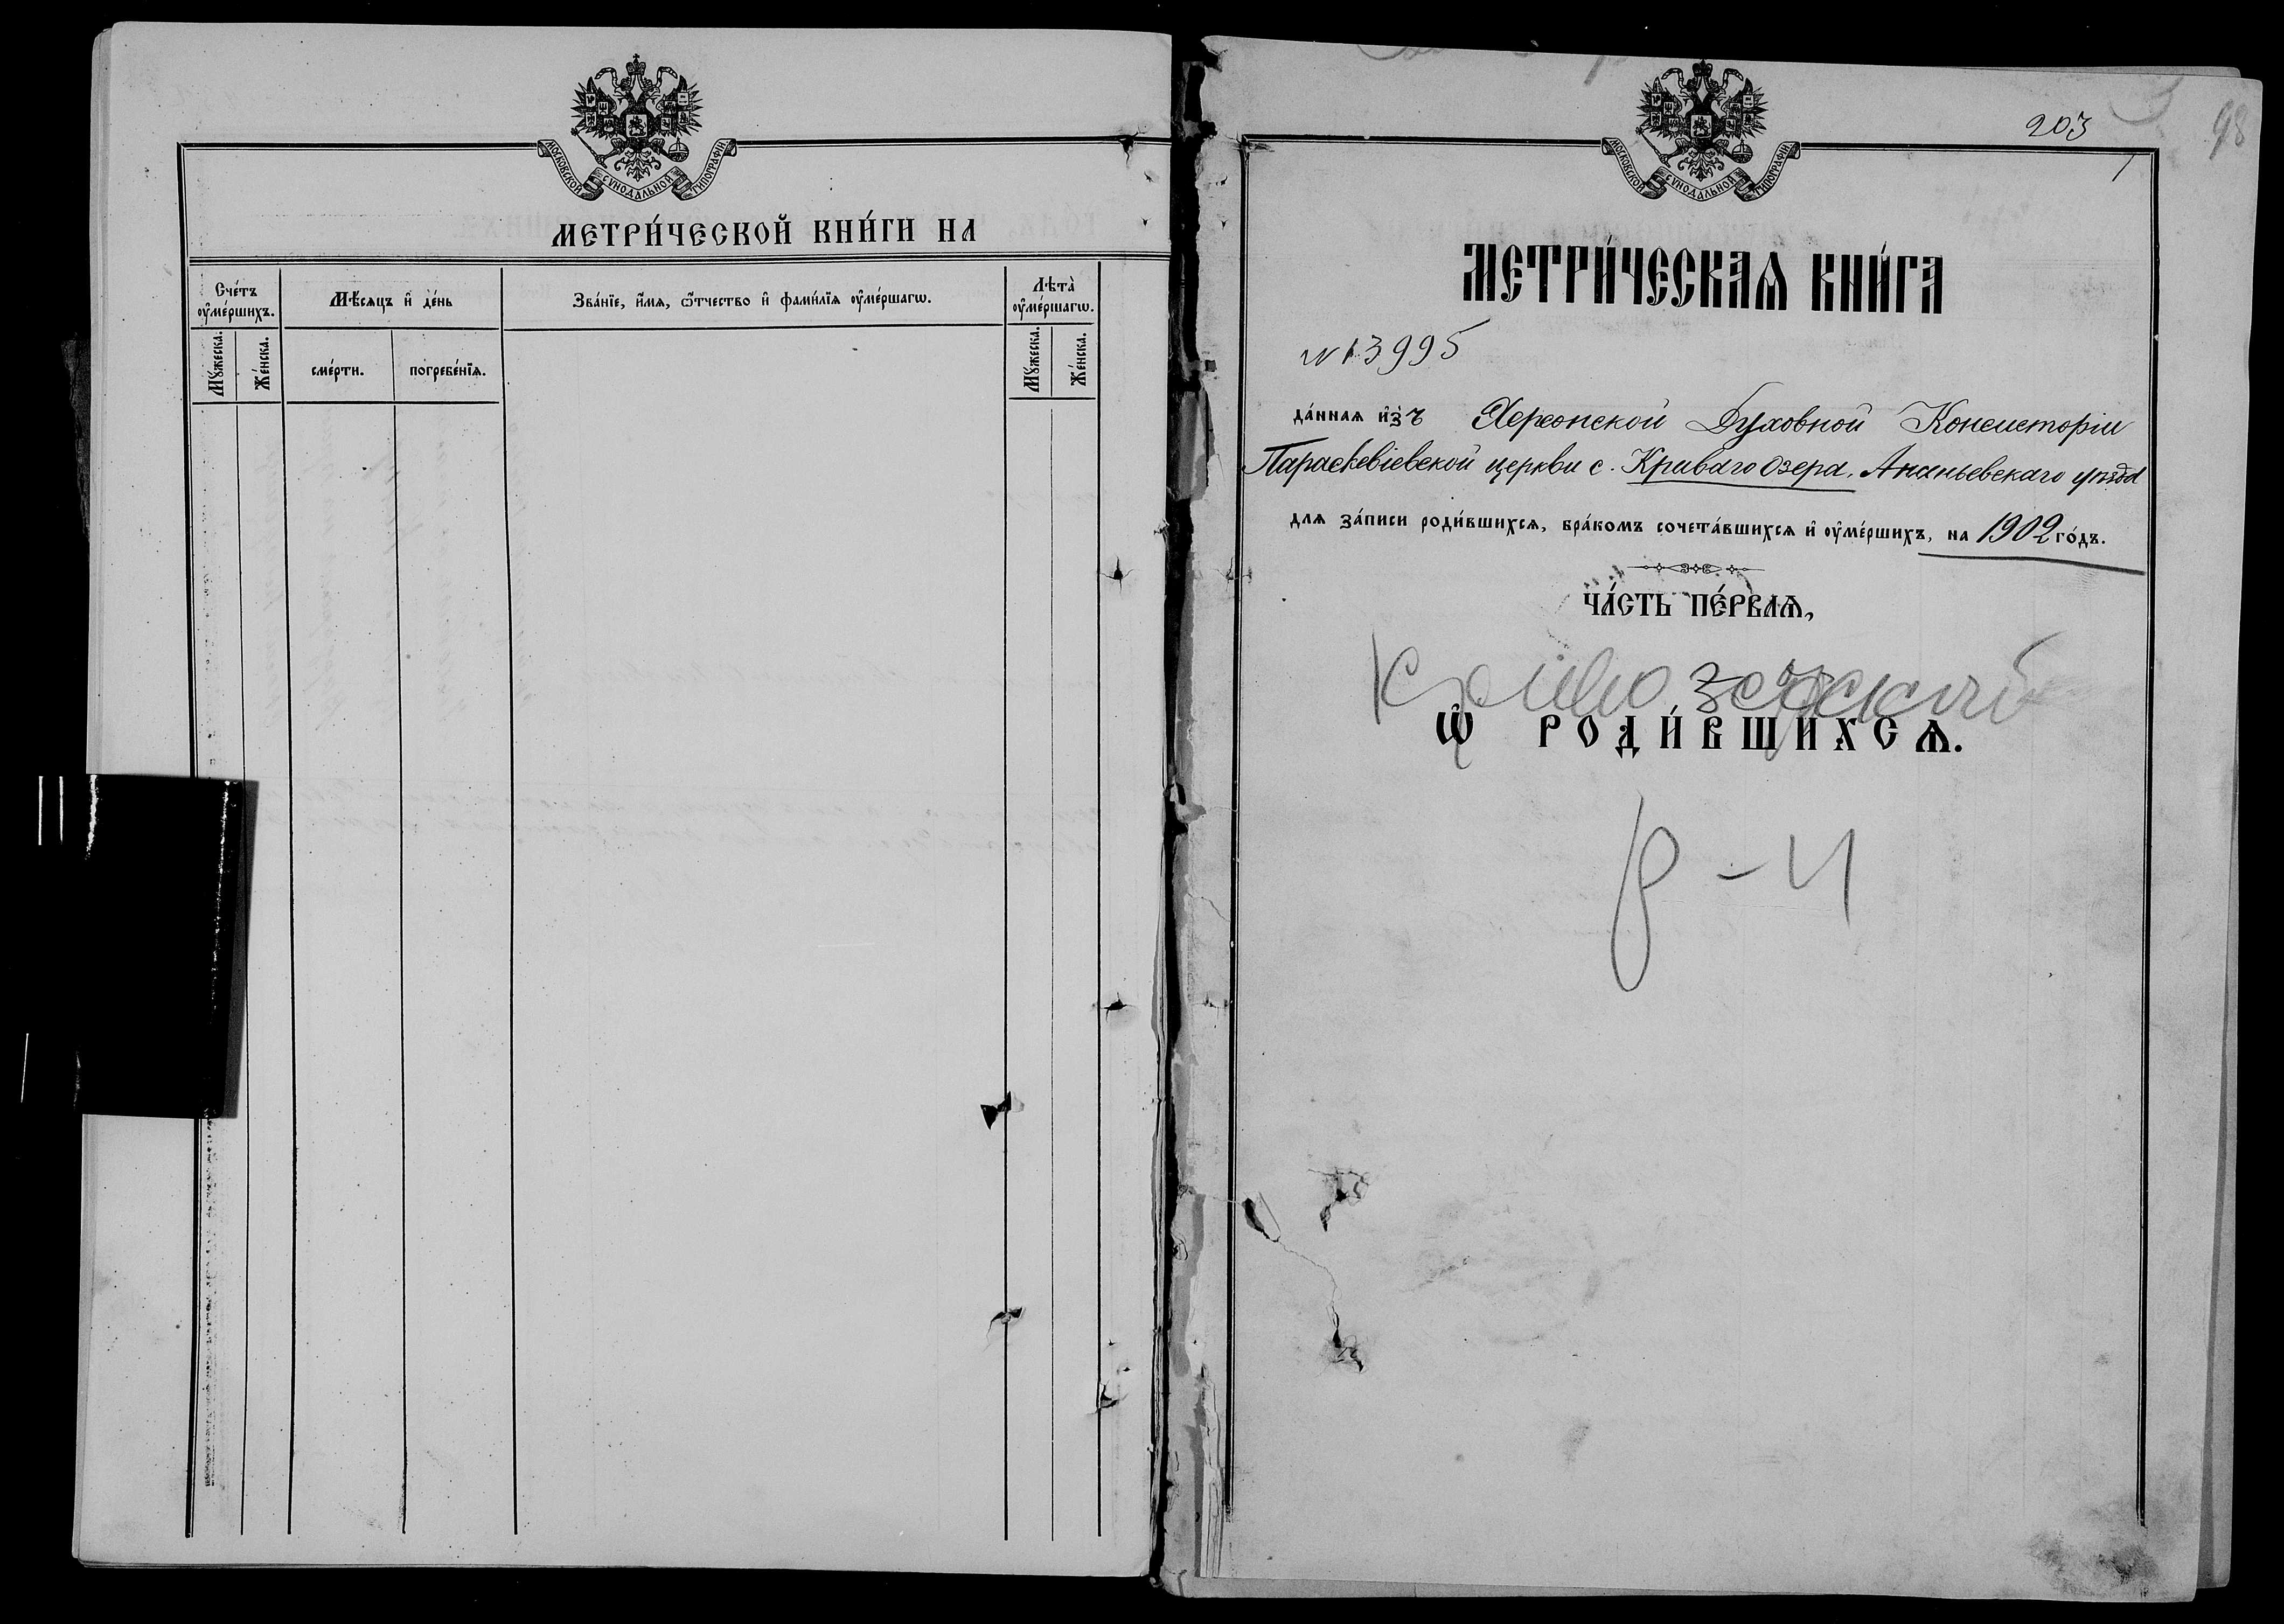 МОСКОВСКОЙ СѴНОДАЛЬНОЙ ТИПОГРАФІИ
МЕТРИ́ЧЕСКОЙ КНИ́ГИ НА
Сче́тъ ᲂу҆ме́ршихъ.
Мѣ́сяцъ и҆ де́нь
Зва́нїе, и҆́мѧ, ѻ҆́тчество и҆ фами́лїѧ ᲂу҆ме́ршагѡ.
Лѣ́та ᲂу҆ме́ршагѡ.
Мꙋ́жеска.
Же́нска.
сме́рти.
погребе́нїѧ.
Мꙋ́жеска.
Же́нска.
98
203
1
МОСКОВСКОЙ СѴНОДАЛЬНОЙ ТИПОГРАФІИ
МЕТРИ́ЧЕСКАѦ КНИ́ГА
№ 13995
да́ннаѧ и҆зъ Херсонской Духовной Консисторіи
Параскевіевской церкви с. Криваго Озера, Ананьевскаго уѣзда
длѧ за́писи роди́вшихсѧ, бра́комъ сочета́вшихсѧ и҆ ᲂу҆ме́ршихъ, на 1902 го́дъ.
ЧА́СТЬ ПЕ́РВАѦ,
Ѡ҆ РОДИ́ВШИХСѦ.
р-н